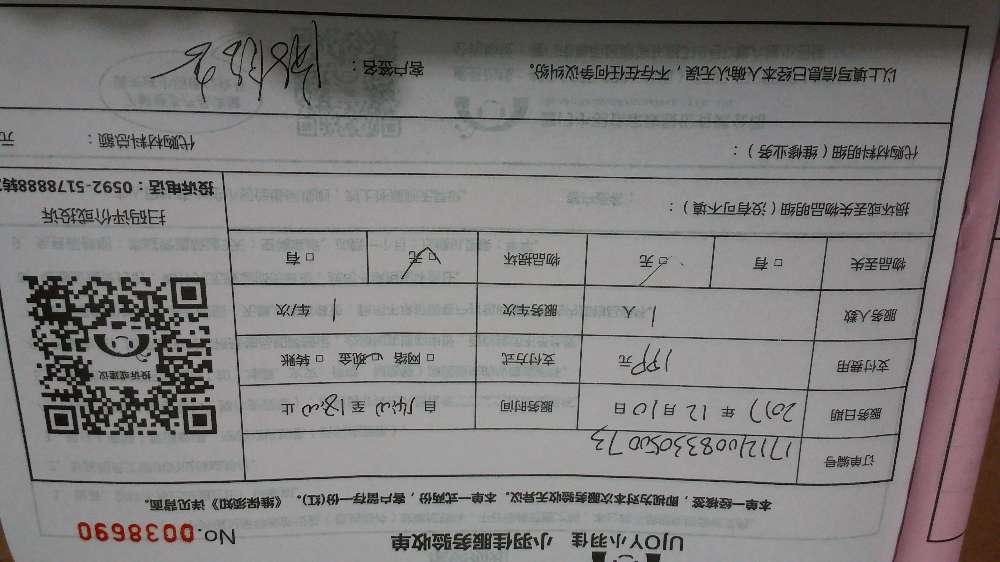 UJOY小羽佳 小羽佳服务验收单
No.0038690
本单一经核签，即视为对本次服务验收无异议。本单一式两份，客户留存一份(红)。《维保须知》详见背面。
订单编号 1712100833050073
服务日期 2017 年 12 月 10 日 服务时间 自 14:00 至 18:00 止
支付费用 199 元 支付方式 网络 现金 转账
服务人数 1 人 服务车次 1 车/次
物品丢失 有 无 物品损坏 有 无
投诉或建议
扫码评价或投诉
投诉电话：0592-5178888转
损坏或丢失物品明细（没有可不填）：
代购材料明细（维修业务）：
代购材料总额： 元
以上填写信息已经本人确认无误，不存在任何争议纠纷。 客户签名：